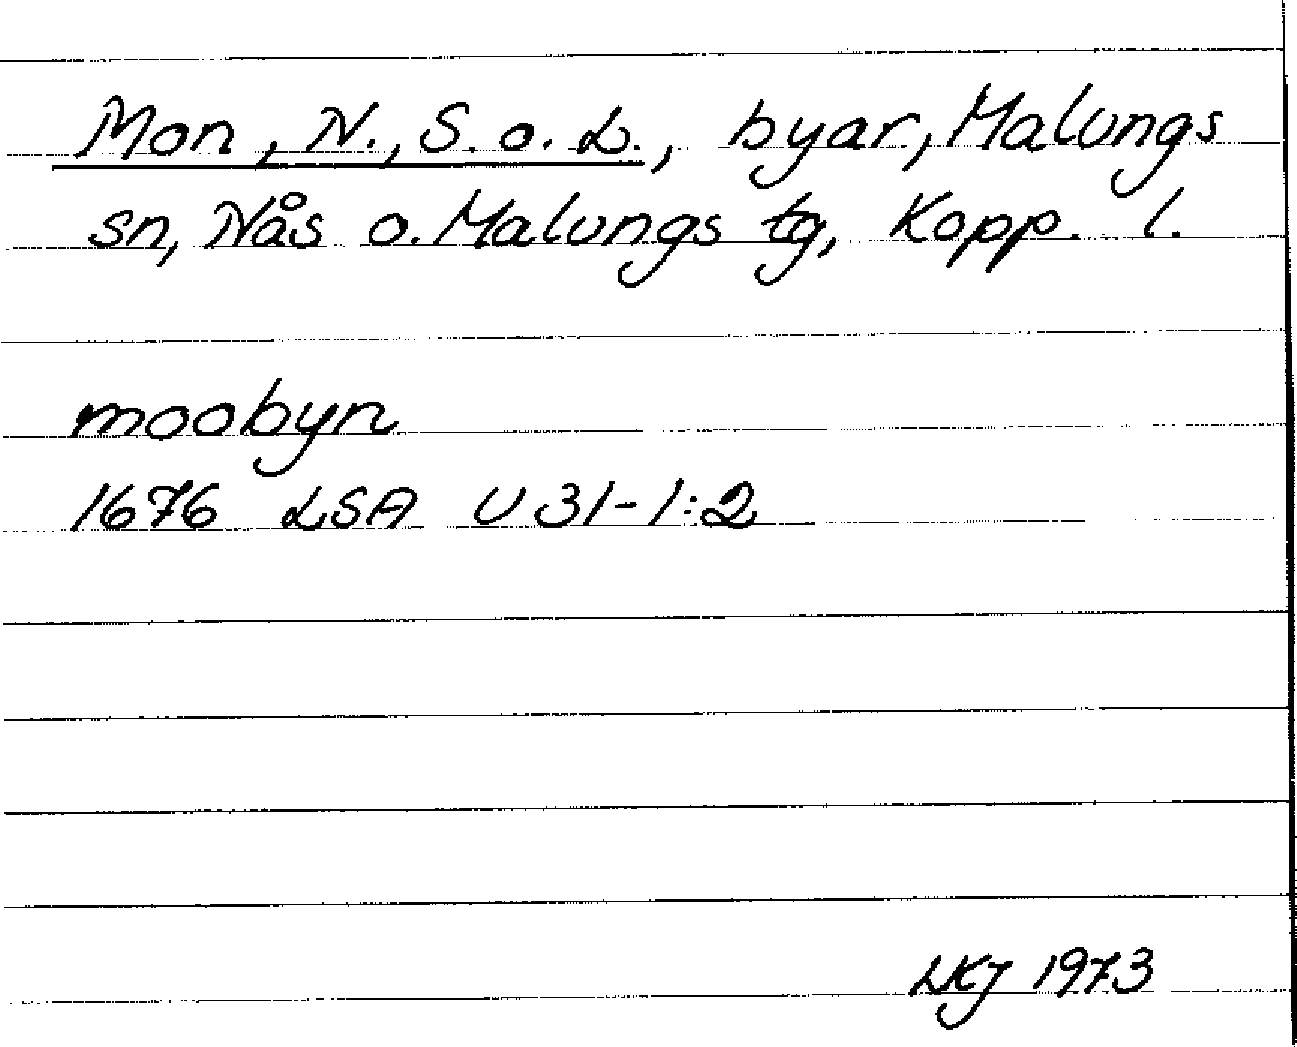 Mon, N., S. o. L., byar, Malungs
sn, Nås o. Malungs tg, Kopp. l.
moobyn
1676 LSA U 31-1:2
LKJ 1973